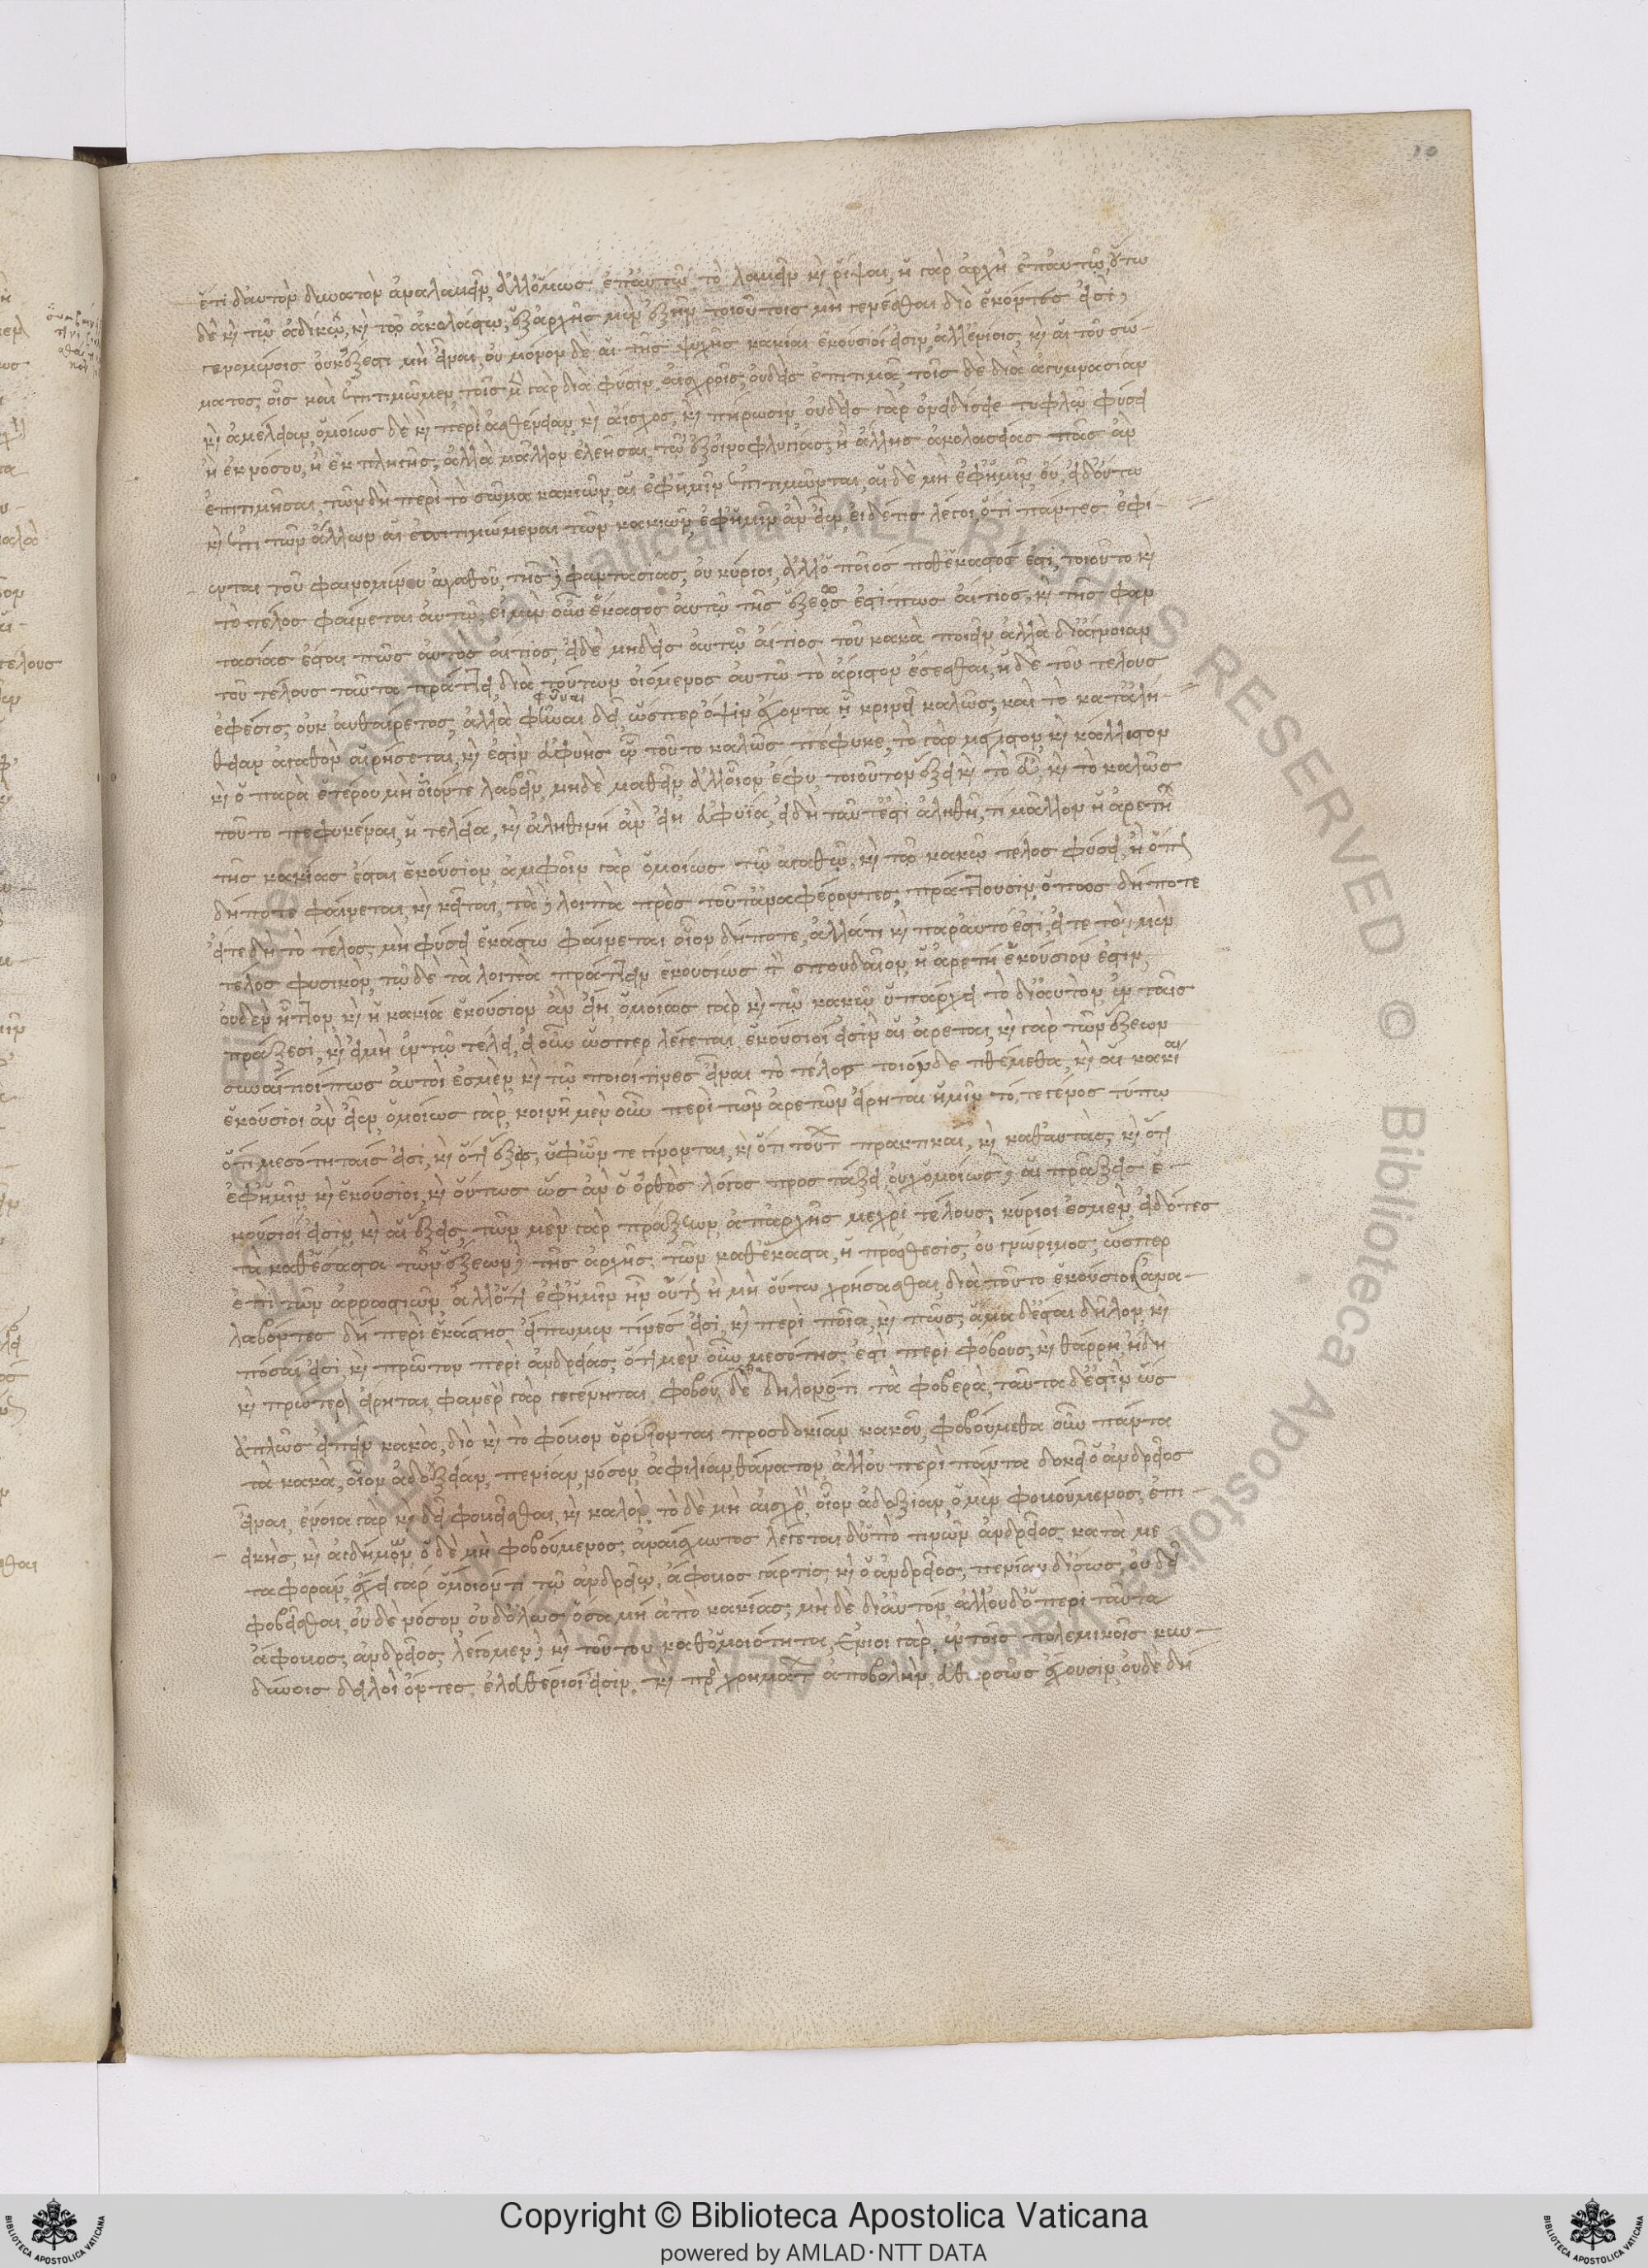 ἔτι δ'αὐτὸν δυνατὸν ἀναλαβεῖν, ἀλλ' ὅμως ἐπ' αὐτῷ τὸ λαβεῖν καὶ ῥίψαι, ἡ γὰρ ἀρχὴ ἐπ' αὐτῷ, οὕτω
δὲ καὶ τῷ ἀδίκῳ, καὶ τῷ ἀκολάστῳ, ἐξαρχῆς μὲν ἐξῆν τοιούτοις μὴ γενέσθαι διὸ ἑκόντες εἰσὶ,
γενομένοις οὐκέξεστι μὴ εἶναι, οὐ μόνον δὲ αἱ τῆς ψυχῆς κακίαι ἑκούσιοί εἰσιν, ἀλλ' ἐνίοις, καὶ αἱ τοῦ σώ-
ματος, οἷς καὶ ἐπιτιμῶμεν, τοῖς μὲν γὰρ διὰ φύσιν αἰσχροῖς, οὐδεὶς ἐπιτιμᾷ, τοῖς δὲ διὰ ἀγυμνασίαν
καὶ ἀμέλειαν, ὁμοίως δὲ καὶ περὶ ἀσθένειαν, καὶ αἶσχος, καὶ πήρωσιν, οὐδεὶς γὰρ ὀνειδίσειε τυφλῷ φύσει
ἢ ἐκ νόσου, ἢ ἐκ πληγῆς, ἀλλὰ μᾶλλον ἐλεήσαι, τῷ δ' ἐξοινοφλυγίας, ἢ ἄλλης ἀκολασείας πᾶς ἂν
ἐπιτιμήσαι, τῶν δὴ περὶ τὸ σῶμα κακιῶν, αἱ ἐφ' ἡμῖν ἐπιτιμῶνται, αἱ δὲ μὴ ἐφ' ἡμῖν, οὔ, εἰ δ' οὕτω
καὶ ἐπὶ τῶν ἄλλων αἱ ἐπιτιμώμεναι τῶν κακιῶν, ἐφ' ἡμῖν ἂν εἶεν, εἰ δέ τις λέγοι, ὅτι πάντες ἐφί-
ενται τοῦ φαινομένου ἀγαθοῦ, τῆς δὲ φαντασίας, οὐ κύριοι, ἀλλ' ὁποῖός ποθ' ἕκαστός ἐστι, τοιοῦτο καὶ
τὸ τέλος φαίνεται αὐτῷ, εἰ μὲν οὖν ἕκαστος αὑτῷ τῆς ἕξεως ἐστί πως αἴτιος, καὶ τῆς φαν
τασίας ἔσται πως αὐτὸς αἴτιος, εἰ δὲ μηδεὶς αὑτῷ αἴτιος τοῦ κακὰ ποιεῖν, ἀλλὰ δι' ἄγνοιαν
τοῦ τέλους ταῦτα πράττει, διὰ τούτων οἰόμενος αὑτῷ τὸ ἄριστον ἔσεσθαι, ἡ δὲ τοῦ τέλους
ἔφεσις, οὐκ αὐθαίρετος, ἀλλὰ φῦναι δεῖ, ὥσπερ ὄψιν ἔχοντα ᾗ κρινεῖ καλῶς, καὶ τὸ κατ' ἀλή-
θειαν ἀγαθὸν αἱρήσεται, καὶ ἔστιν εὐφυὴς ᾧ τοῦτο καλῶς πέφυκε, τὸ γὰρ μέγιστον, καὶ κάλλιστον
καὶ ὃ παρὰ ἑτέρου μὴ οἷόντε λαβεῖν, μηδὲ μαθεῖν, ἀλλ' οἷον ἔφυ, τοιοῦτον ἕξει καὶ τὸ εὖ, καὶ τὸ καλῶς
τοῦτο πεφυκέναι, ἡ τελεία, καὶ ἀληθινὴ ἂν εἴη εὐφυΐα, εἰ δὴ ταῦτ' ἐστὶ ἀληθῆ, τί μᾶλλον ἡ ἀρετὴ
τῆς κακίας ἔσται ἑκούσιον, ἀμφοῖν γὰρ ὁμοίως τῷ ἀγαθῷ, καὶ τῷ κακῷ τέλος φύσει, ἢ ὅπως
δήποτε φαίνεται, καὶ κεῖται, τὰ δὲ λοιπὰ πρὸς τοῦτ' ἀναφέροντες, πράττουσιν, ὅπως δήποτε
εἴτε δὴ τὸ τέλος, μὴ φύσει ἑκάστῳ φαίνεται οἷον δήποτε, ἀλλά τι καὶ παρ' αὐτό ἐστι, εἴτε τὸ μὲν
τέλος φυσικόν, τῷ δὲ τὰ λοιπὰ πράττειν ἑκουσίως τὸν σπουδαῖον, ἡ ἀρετὴ ἑκούσιόν ἐστιν,
οὐδὲν ἧττον, καὶ ἡ κακία ἑκούσιον ἂν εἴη, ὁμοίως γὰρ καὶ τῷ κακῷ ὑπάρχει τὸ δι' αὐτὸν, ἐν ταῖς
πράξεσι, καὶ εἰ μὴ ἐν τῷ τέλει, εἰ οὖν ὥσπερ λέγεται, ἑκούσιοί εἰσὶν αἱ ἀρεταὶ, καὶ γὰρ τῶν ἕξεων
συναίτιοί πως αὐτοὶ ἐσμὲν, καὶ τῷ ποιοί τινες εἶναι τὸ τέλος τοιόνδε τιθέμεθα, καὶ αἱ κακίαι
ἑκούσιοι ἂν εἶεν, ὁμοίως γάρ, κοινῇ μὲν οὖν περὶ τῶν ἀρετῶν εἴρηται ἡμῖν τό,τε γένος τύπῳ
ὅτι μεσότητές εἰσι, καὶ ὅτι ἕξεις, ὑφ' ὧν τε γίνονται, καὶ ὅτι τούτων πρακτικαὶ, καὶ καθ' αὑτὰς, καὶ ὅτι
ἐφ' ἡμῖν, καὶ ἑκούσιοι, καὶ οὕτως ὡς ἂν ὁ ὀρθὸς λόγος προστάξει, οὐχ ὁμοίως δὲ αἱ πράξεις ἑ-
κούσιοί εἰσιν, καὶ αἱ ἕξεις, τῶν μὲν γὰρ πράξεων, ἀπ' ἀρχῆς μέχρι τέλους, κύριοι ἐσμὲν, εἰδότες
τὰ καθ' ἕκαστα τῶν ἕξεων δὲ τῆς ἀρχῆς, τῶν καθ' ἕκαστα, ἡ πρόσθεσις, οὐ γνώριμος, ὥσπερ
ἐπὶ τῶν ἀρρωστιῶν, ἀλλ' ὅτι ἐφ' ἡμῖν ἦν οὕτως ἢ μὴ οὕτω χρήσασθαι, διὰ τοῦτο ἑκούσιοι, ἀνα-
λαβόντες δὴ περὶ ἑκάστης εἴπωμεν τίνες εἰσὶ, καὶ περὶ ποῖα, καὶ πῶς, ἅμα δ' ἔσται δῆλον, καὶ
πόσαι εἰσὶ, καὶ πρῶτον περὶ ἀνδρείας, ὅτι μὲν οὖν μεσότης ἐστὶ περὶ φόβους, καὶ θάρρη, ἤδη
καὶ πρότερον εἴρηται, φανερὸν γὰρ γεγένηται, φοβούμεθα δὲ δηλονότι τὰ φοβερὰ, ταῦτα δ' ἐστὶν ὡς
ἁπλῶς εἰπεῖν κακὰ, διὸ καὶ τὸ φόβον ὁρίζονται προσδοκίαν κακοῦ, φοβούμεθα οὖν πάντα
τὰ κακὰ, οἷον ἀδοξίαν, πενίαν, νόσον, ἀφιλίαν, θάνατον, ἀλλ' οὐ περὶ πάντα δοκεῖ ὁ ἀνδρεῖος
εἶναι, ἔνια γὰρ καὶ δεῖ φοβεῖσθαι, καὶ καλὸν, τὸ δὲ μὴ αἰσχρὸν, οἷον ἀδοξίαν, ὁ μὲν φοβούμενος, ἐπι-
εικὴς, καὶ αἰδήμων, ὁ δὲ μὴ φοβούμενος, ἀναίσχυντος λέγεται δ' ὑπό τινων ἀνδρεῖος, κατὰ με
ταφοράν, ἔχει γάρ ὅμοιόν τι τῷ ἀνδρείῳ, ἄφοβος γάρ τις καὶ ὁ ἀνδρεῖος, πενίαν δ' ἴσως, οὐ δεῖ
φοβεῖσθαι, οὐδὲ νόσον, οὐδ' ὅλως ὅσα μὴ ἀπὸ κακίας, μὴ δὲ δι' αὐτὸν, ἀλλ' οὐδ' ὁ περὶ ταῦτα
ἄφοβος, ἀνδρεῖος, λέγομεν δὲ καὶ τοῦτον καθ' ὁμοιότητα, ἔνιοι γὰρ, ἐν τοῖς πολεμικοῖς κιν-
δύνοις δειλοὶ ὄντες, ἐλευθέριοί εἰσιν, καὶ πρὸς χρημάτων ἀποβολὴν εὐθαρσῶς ἔχουσιν, οὐδὲ δὴ